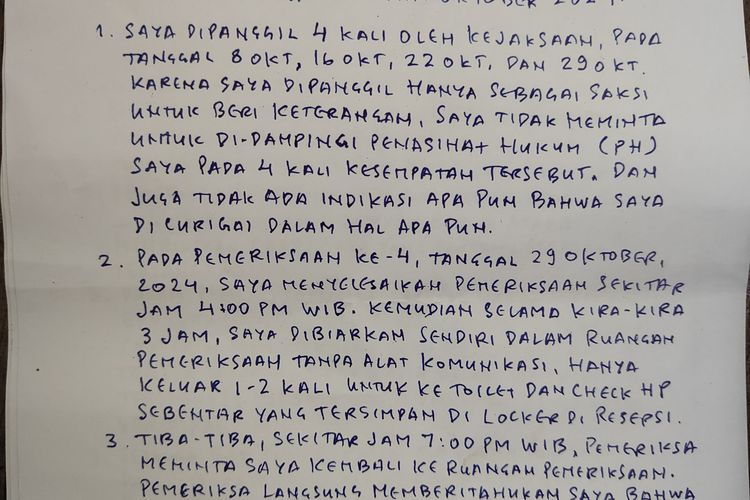 OKTOBER 2024.
1. SAYA DIPANGGIL 4 KALI OLEH KEJAKSAAN, PADA
TANGGAL 8 OKT, 16 OKT, 22 OKT, DAN 29 OKT.
KARENA SAYA DIPANGGIL HANYA SEBAGAI SAKSI
UNTUK BERI KETERANGAN, SAYA TIDAK MEMINTA
UNTUK DI-DAMPINGI PENASIHAT HUKUM (PH)
SAYA PADA 4 KALI KESEMPATAN TERSEBUT. DAN
JUGA TIDAK ADA INDIKASI APA PUN BAHWA SAYA
DI CURIGAI DALAM HAL APA PUN.
2. PADA PEMERIKSAAN KE-4, TANGGAL 29 OKTOBER,
2024, SAYA MENYELESAIKAN PEMERIKSAAN SEKITAR
JAM 4:00 PM WIB. KEMUDIAN SELAMA KIRA-KIRA
3 JAM, SAYA DIBIARKAN SENDIRI DALAM RUANGAN
PEMERIKSAAN TANPA ALAT KOMUNIKASI, HANYA
KELUAR 1-2 KALI UNTUK KE TOILET DAN CHECK HP
SEBENTAR YANG TERSIMPAN DI LOCKER DI RESEPSI.
3. TIBA-TIBA, SEKITAR JAM 7:00 PM WIB, PEMERIKSA
MEMINTA SAYA KEMBALI KE RUANGAN PEMERIKSAAN.
PEMERIKSA LANGSUNG MEMBERITAHUKAN SAYA BAHWA